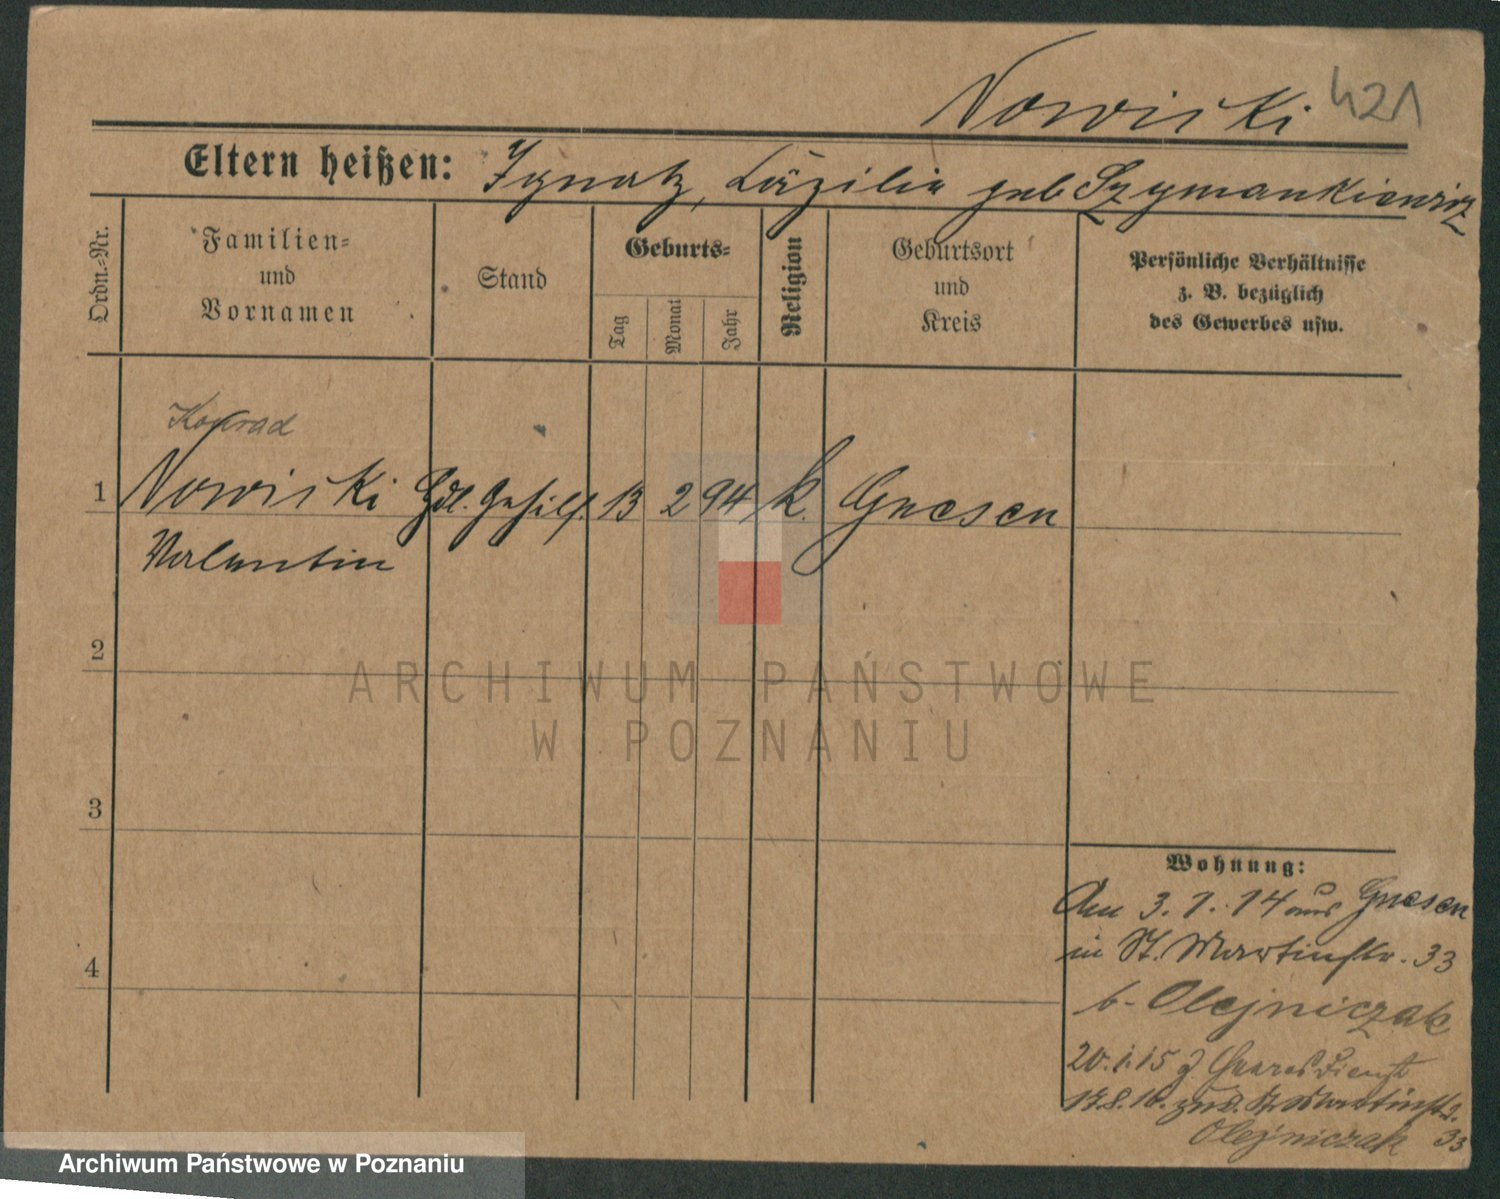 Nowiski 421
Eltern heißen: Ignatz, Cäzilie geb Szymankiewicz
Ordn.-Nr.
Familien-
und
Vornamen
Stand
Geburts-
Tag
Monat
Jahr
Religion
Geburtsort
und
Kreis
Persönliche Verhältnisse
z. B. bezüglich
des Gewerbes usw.
Konrad
1 Nowiski Hdl. Gehilf. 13 2 94 k. Gnesen
Valentin
2
3
4
Wohnung:
Am 3. 1. 14 aus Gnesen
in St. Martinstr. 33
b. Olejniczak
20.1.15 z Heeresdienst
St. Martinstr.
Olejniczak 33
ARCHIWUM PAŃSTWOWE
W POZNANIU
Archiwum Państwowe w Poznaniu